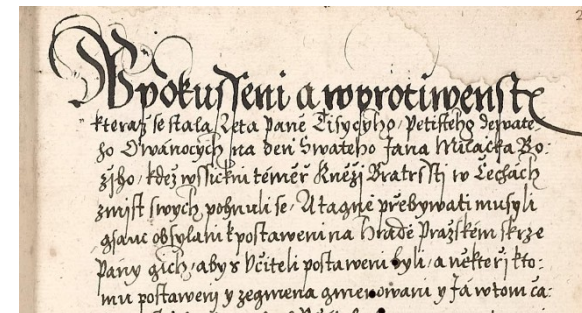 W pokussení a w protiwenste
kteraž se stala Leta Páně Tisycýho Petistého dewate:
ho O wánocých na den Swateho Jana Miláčka Bo:
žího, kdež wssickni téměř Kněží Bratrsstí w Čechách
z míst swých pohnuli se, A tagně přebýwati musyli
gsauc obsýlani k postawení na Hradě Pražském skrze
Pány gich, aby s Včiteli postaweni byli, a někteří kto:
mu postawení y zegména gmenowáni y Já w tom ča: